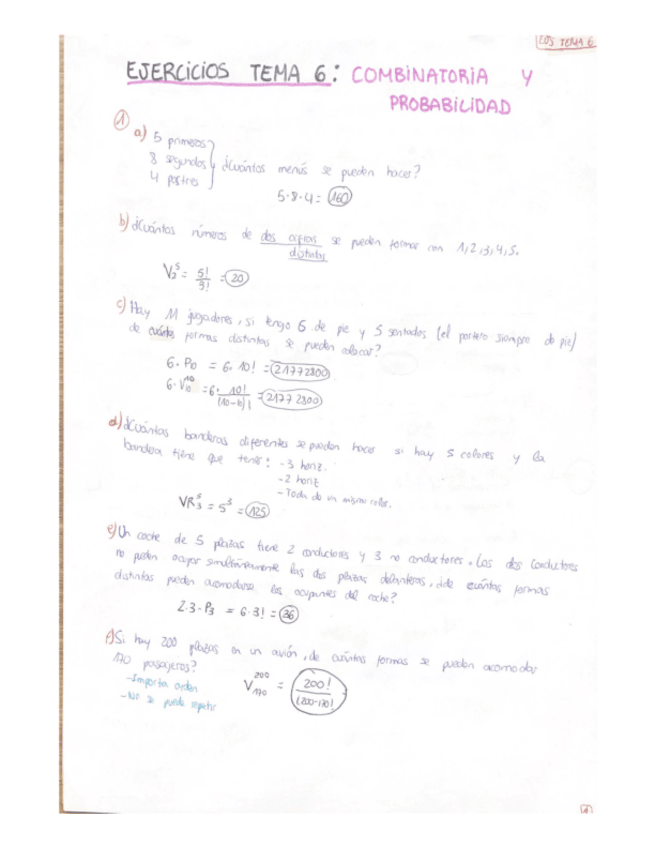 EJERCICIOS TEMA 6: COMBINATORIA Y
PROBABILIDAD
1
a) 5 primeros
8 segundos ¿Cuántos menús se pueden hacer?
4 postres
5·8·4 = 160
b) ¿Cuántos números de dos cifras se pueden formar con 1,2,3,4,5.
distintas
V₂⁵ = 5!/3! = 20
c) Hay 11 jugadores, si tengo 6 de pie y 5 sentados (el portero siempre de pie)
de cuántas formas distintas se pueden colocar?
6·P₁₀ = 6·10! = 21772800
6·V₁₀¹⁰ = 6·10!/(10-10)! = 21772800
d) ¿Cuántas banderas diferentes se pueden hacer si hay 5 colores y la
bandera tiene que tener: -3 horiz.
-2 horiz
-Toda de un mismo color.
VR₃⁵ = 5³ = 125
e) Un coche de 5 plazas tiene 2 conductores y 3 no conductores. Los dos conductores
no pueden ocupar simultáneamente las dos plazas delanteras, ¿de cuántas formas
distintas pueden acomodarse los ocupantes del coche?
2·3·P₃ = 6·3! = 36
f) Si hay 200 plazas en un avión, de cuántas formas se pueden acomodar
170 pasajeros?
-Importa orden
-No se puede repetir
V₁₇₀²⁰⁰ = 200!/(200-170)!